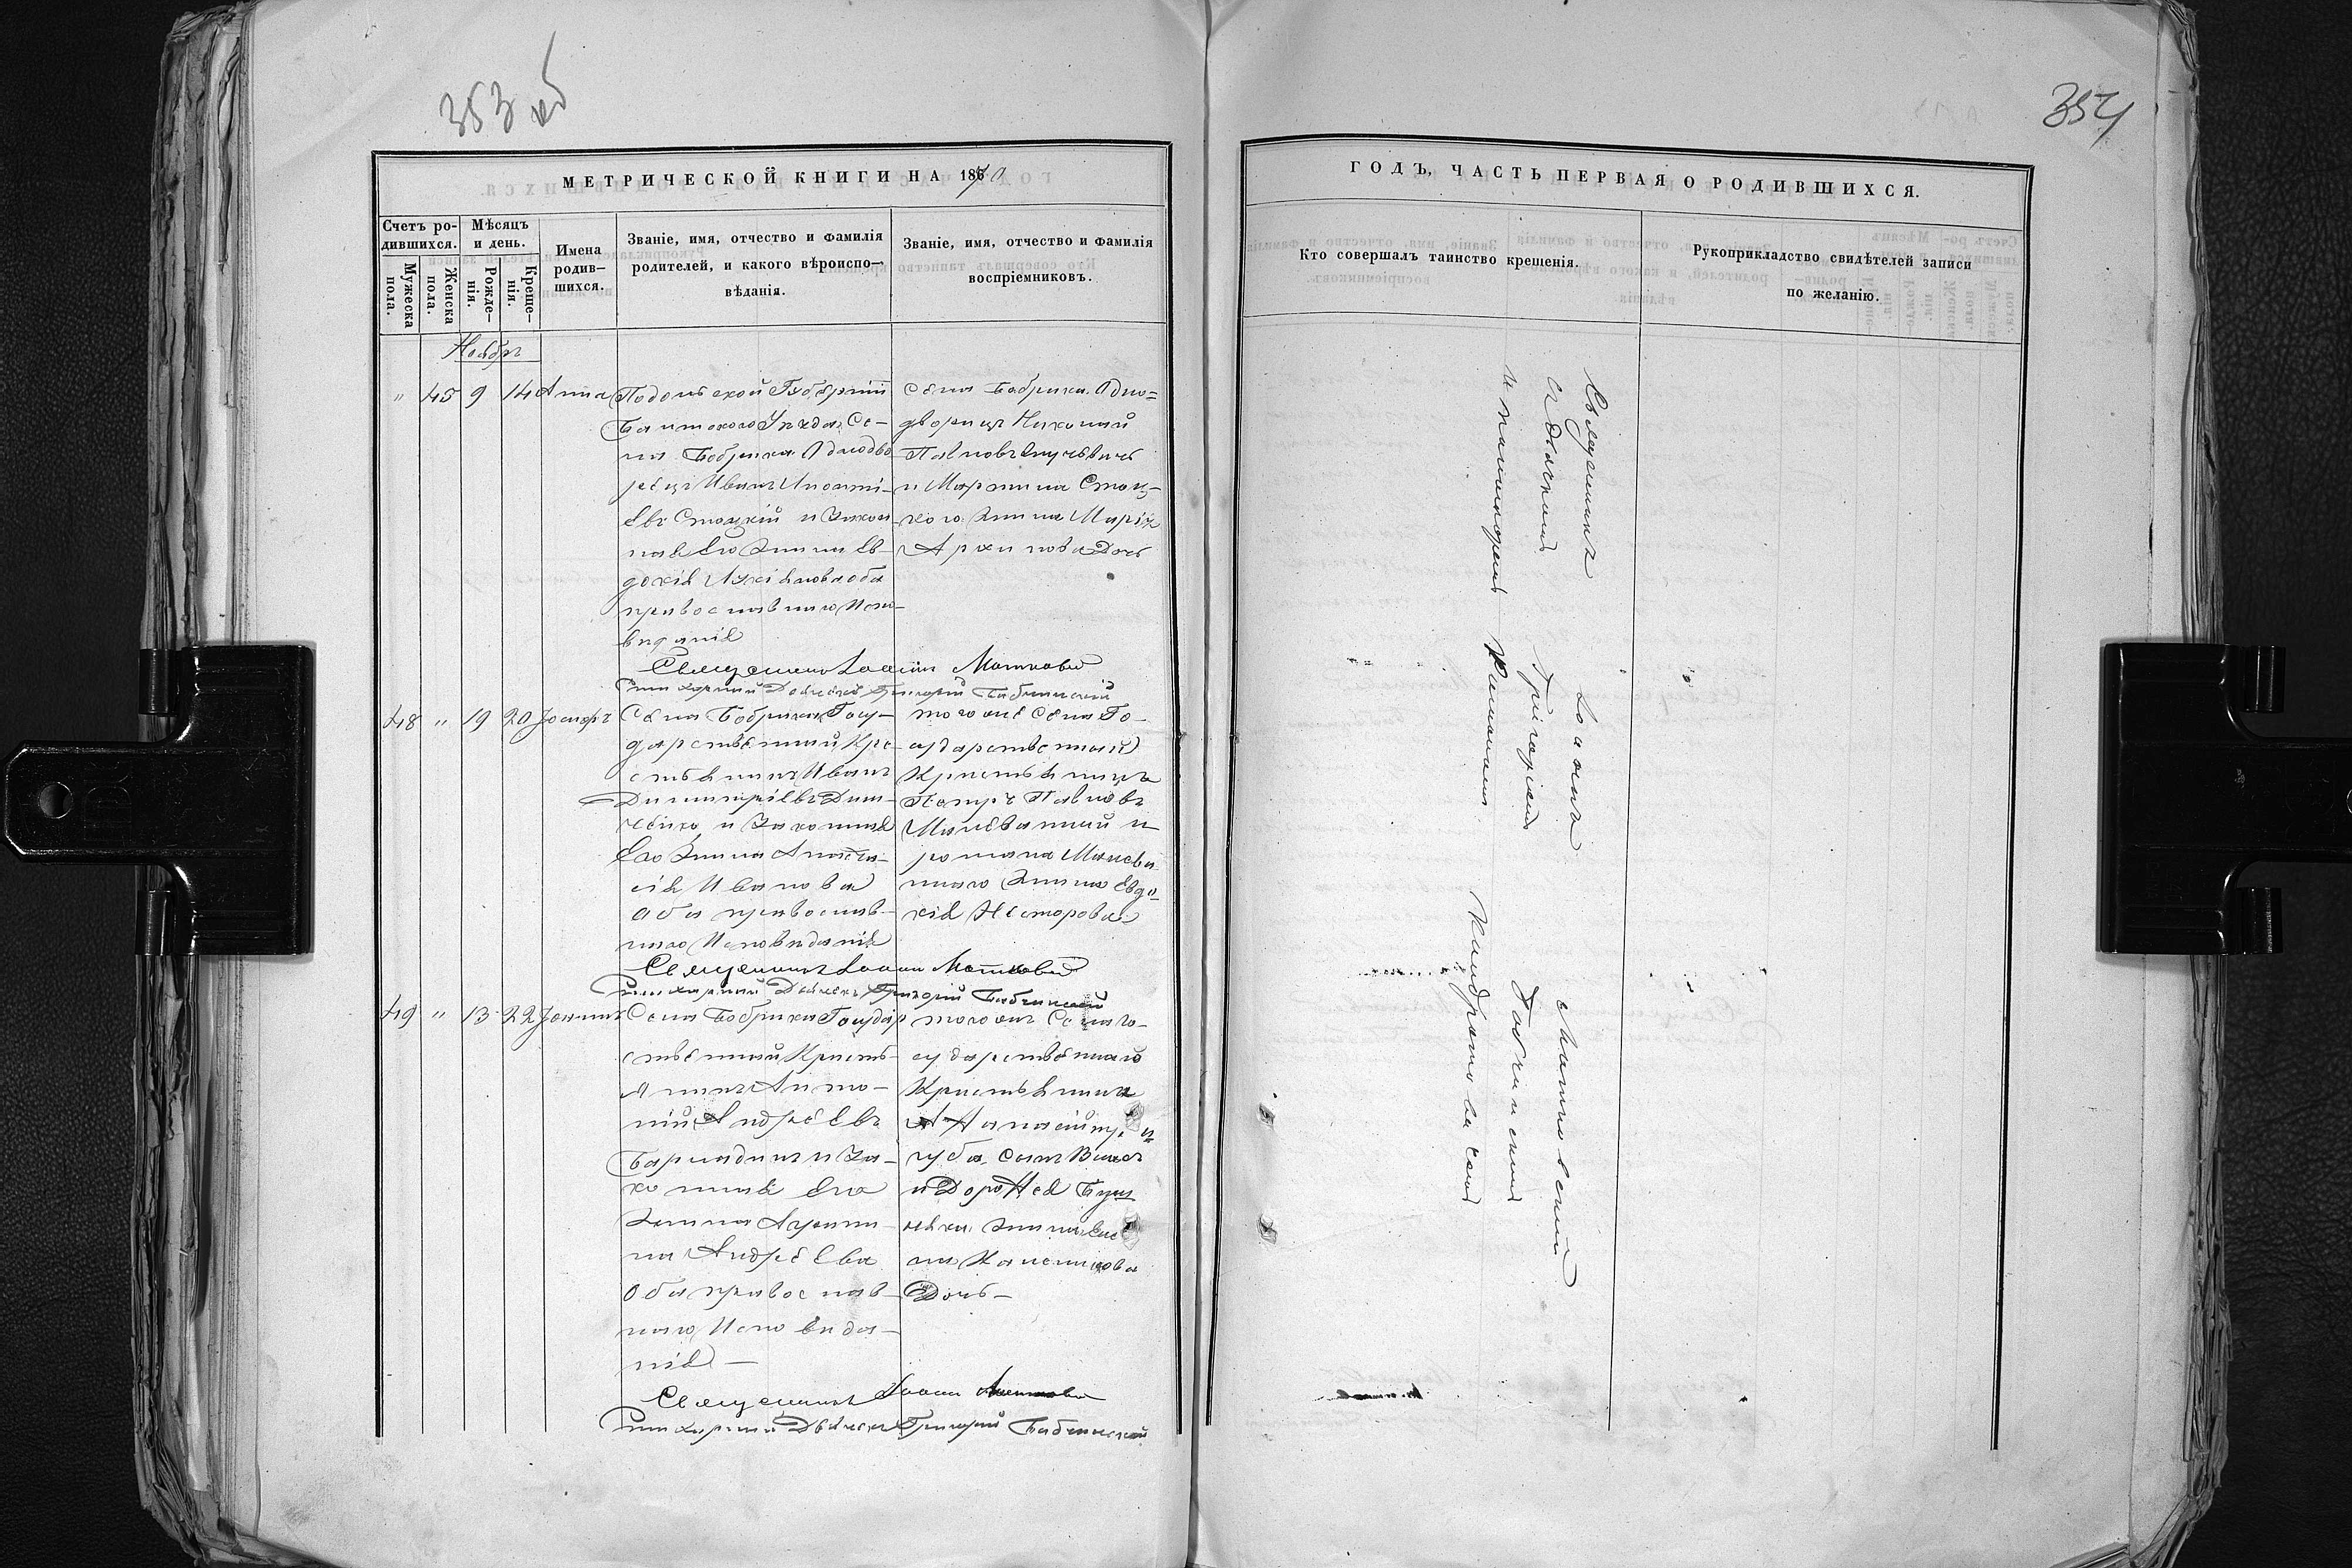 353 об
МЕТРИЧЕСКОЙ КНИГИ НА 1870
Счетъ ро-
дившихся.
Мужеска
пола.
Женска
пола.
Мѣсяцъ
и день.
Рожде-
нія.
Креще-
нія.
Имена
родив-
шихся.
Званіе, имя, отчество и фамилія
родителей, и какого вѣроиспо-
вѣданія.
Званіе, имя, отчество и фамилія
воспріемниковъ.
Ноябрь
" 45 9 14 Анна
Подольской Губерніи
Балтского Уѣзда Се-
ла Бобрика Однодво
рецъ Иванъ
Стоцкій и Закон
ная Его Жинна Ев-
докія Лукіянова оба
православнаго Испо-
вѣданія
Села Бобрика Одно=
дворецъ Николай
Павловъ
и Мартина Стоц-
кого Жинна Марія
Архипова Дочь
Священникъ Іоаннъ
Дьячекъ Григорій Бабчинскій
48 " 19 20 Іосифъ
Села Бобрика Госу-
дарственный Кре-
стьянинъ Иванъ
Димитріевъ Дим-
ченко и Законная
Его Жинна Анаста-
сія Иванова
Оба православ-
наго Исповѣданія
того же Села Го-
сударственный
Кристьянинъ
Петръ Павловъ
Малеванный и
романа Малева
нного Жинна Евдо-
кія Несторова
Священникъ Іоаннъ
Дьячекъ Григорій Бабчинскій
49 " 13 22 Іоаннъ
Села Бобрика Государ
ственный Кристь-
янинъ Анто-
ній Андреевъ
и За-
конная Его
Жинна
на Андреева
Оба православ-
наго Исповѣда-
нія —
того же Села Го-
сударственнаго
Кристьянина
Аѳанасій
сынъ
и Дороѳея
Жинна
Дочь —
Священникъ Іоаннъ
Дьячекъ Григорій Бабчинскій
354
ГОДЪ, ЧАСТЬ ПЕРВАЯ О РОДИВШИХСЯ.
Кто совершалъ таинство крешенія.
Рукоприкладство свидѣтелей записи
по желанію.
Священникъ Іоаннъ
съ Дьячкомъ Григоріемъ Бабчинскимъ
и пономоремъ